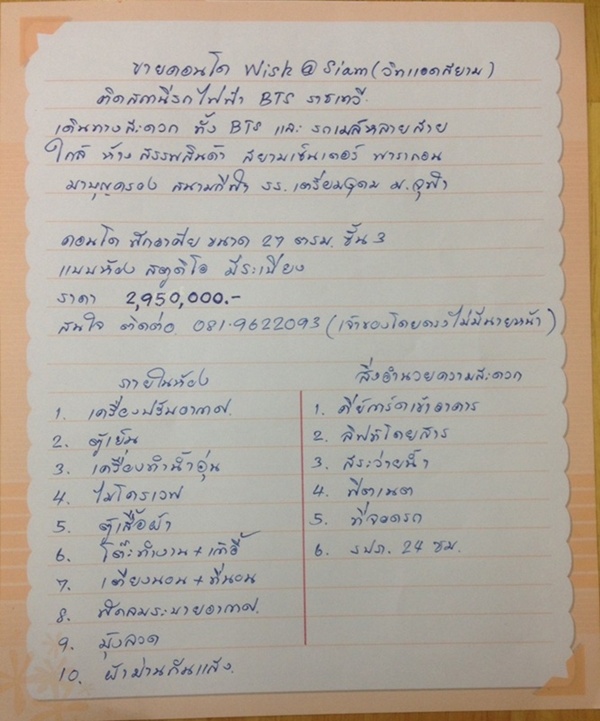 ขายคอนโด Wish @ Siam (วิทแอดสยาม)
ติดสถานีรถไฟฟ้า BTS ราชเทวี
เดินทางสะดวก ทั้ง BTS และ รถเมล์หลายสาย
ใกล้ ห้าง สรรพสินค้า สยามเซ็นเตอร์ พารากอน
มาบุญครอง สนามกีฬา รร. เตรียมอุดม ม. จุฬา
คอนโด พักอาศัย ขนาด 27 ตารม. ชั้น 3
แบบห้อง สตูดิโอ มีระเบียง
ราคา 2,950,000.-
สนใจ ติดต่อ 081-9622093 (เจ้าของโดยตรงไม่มีนายหน้า)
ภายในห้อง
1. เครื่องปรับอากาศ
2. ตู้เย็น
3. เครื่องทำน้ำอุ่น
4. ไมโครเวฟ
5. ตู้เสื้อผ้า
6. โต๊ะทำงาน + เก้าอี้
7. เตียงนอน + ที่นอน
8. พัดลมระบายอากาศ
9. มุ้งลวด
10. ผ้าม่านกันแสง
สิ่งอำนวยความสะดวก
1. คีย์การ์ดเข้าอาคาร
2. ลิฟท์โดยสาร
3. สระว่ายน้ำ
4. ฟิตเนต
5. ที่จอดรถ
6. รปภ. 24 ชม.